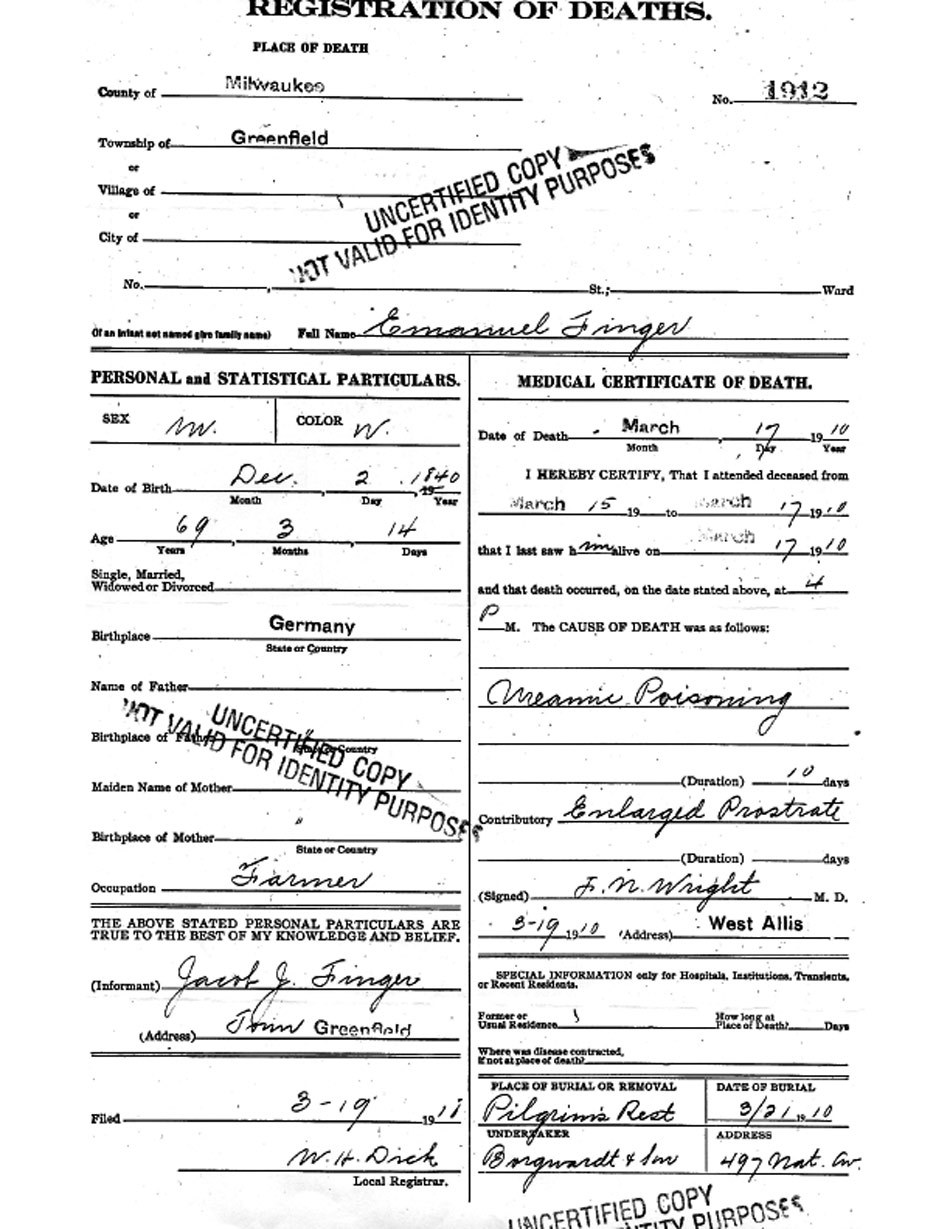 REGISTRATION OF DEATHS.
PLACE OF DEATH
County of Milwaukee
No. 1912
Township of Greenfield
or
Village of
or
City of
UNCERTIFIED COPY
NOT VALID FOR IDENTITY PURPOSES
No. , St.; Ward
(If an infant not named give family name) Full Name Emanuel Finger
PERSONAL and STATISTICAL PARTICULARS.
SEX M. COLOR W.
Date of Birth Dec. , 2 , 1840
19
Month Day Year
Age 69 , 3 , 14
Years Months Days
Single, Married,
Widowed or Divorced
Birthplace Germany
State or Country
Name of Father
Birthplace of Father
State or Country
UNCERTIFIED COPY
NOT VALID FOR IDENTITY PURPOSES
Maiden Name of Mother
Birthplace of Mother "
State or Country
Occupation Farmer
THE ABOVE STATED PERSONAL PARTICULARS ARE
TRUE TO THE BEST OF MY KNOWLEDGE AND BELIEF.
(Informant) Jacob J. Finger
(Address) Town Greenfield
Filed 3-19 1911
W. H. Dick
Local Registrar.
MEDICAL CERTIFICATE OF DEATH.
Date of Death March , 17 , 1910
Month Day Year
I HEREBY CERTIFY, That I attended deceased from
March 15 19 to March 17 1910
that I last saw him alive on March 17 1910
and that death occurred, on the date stated above, at 4
P M. The CAUSE OF DEATH was as follows:
Ureamic Poisoning
(Duration) 10 days
Contributory Enlarged Prostrate
(Duration) days
(Signed) F. N. Wright M. D.
3-19 1910 (Address) West Allis
SPECIAL INFORMATION only for Hospitals, Institutions, Transients,
or Recent Residents.
Former or
Usual Residence
How long at
Place of Death? Days
Where was disease contracted,
if not at place of death?
PLACE OF BURIAL OR REMOVAL
Pilgrims Rest
DATE OF BURIAL
3/21, 1910
UNDERTAKER
Borgwardt & Son
ADDRESS
497 Nat. Av.
UNCERTIFIED COPY
IDENTITY PURPOSES